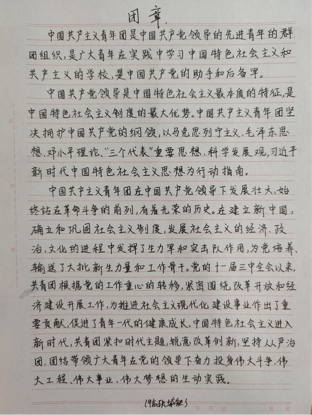 团章.
中国共产主义青年团是中国共产党领导的先进青年的群
团组织,是广大青年在实践中学习中国特色社会主义和
共产主义的学校,是中国共产党的助手和后备军。
中国共产党领导是中国特色社会主义最本质的特征,是
中国特色社会主义制度的最大优势。中国共产主义青年团坚
决拥护中国共产党的纲领,以马克思列宁主义、毛泽东思
想、邓小平理论、“三个代表”重要思想、科学发展观、习近平
新时代中国特色社会主义思想为行动指南。
中国共产主义青年团在中国共产党领导下发展壮大,始
终站在革命斗争的前列,有着光荣的历史。在建立新中国,
确立和巩固社会主义制度,发展社会主义的经济、政
治、文化的进程中发挥了生力军和突击队作用,为党培养、
输送了大批新生力量和工作骨干。党的十一届三中全会以来,
共青团根据党的工作重心的转移,紧密围绕改革开放和经
济建设开展工作,为推进社会主义现代化建设事业作出了重
要贡献,促进了青年一代的健康成长。中国特色社会主义进入
新时代,共青团紧扣时代主题,锐意改革创新,坚持从严治
团,团结带领广大青年在党的领导下奋力投身伟大斗争、伟
大工程、伟大事业、伟大梦想的生动实践。